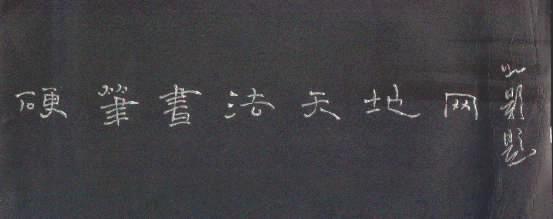 硬筆書法天地网
題